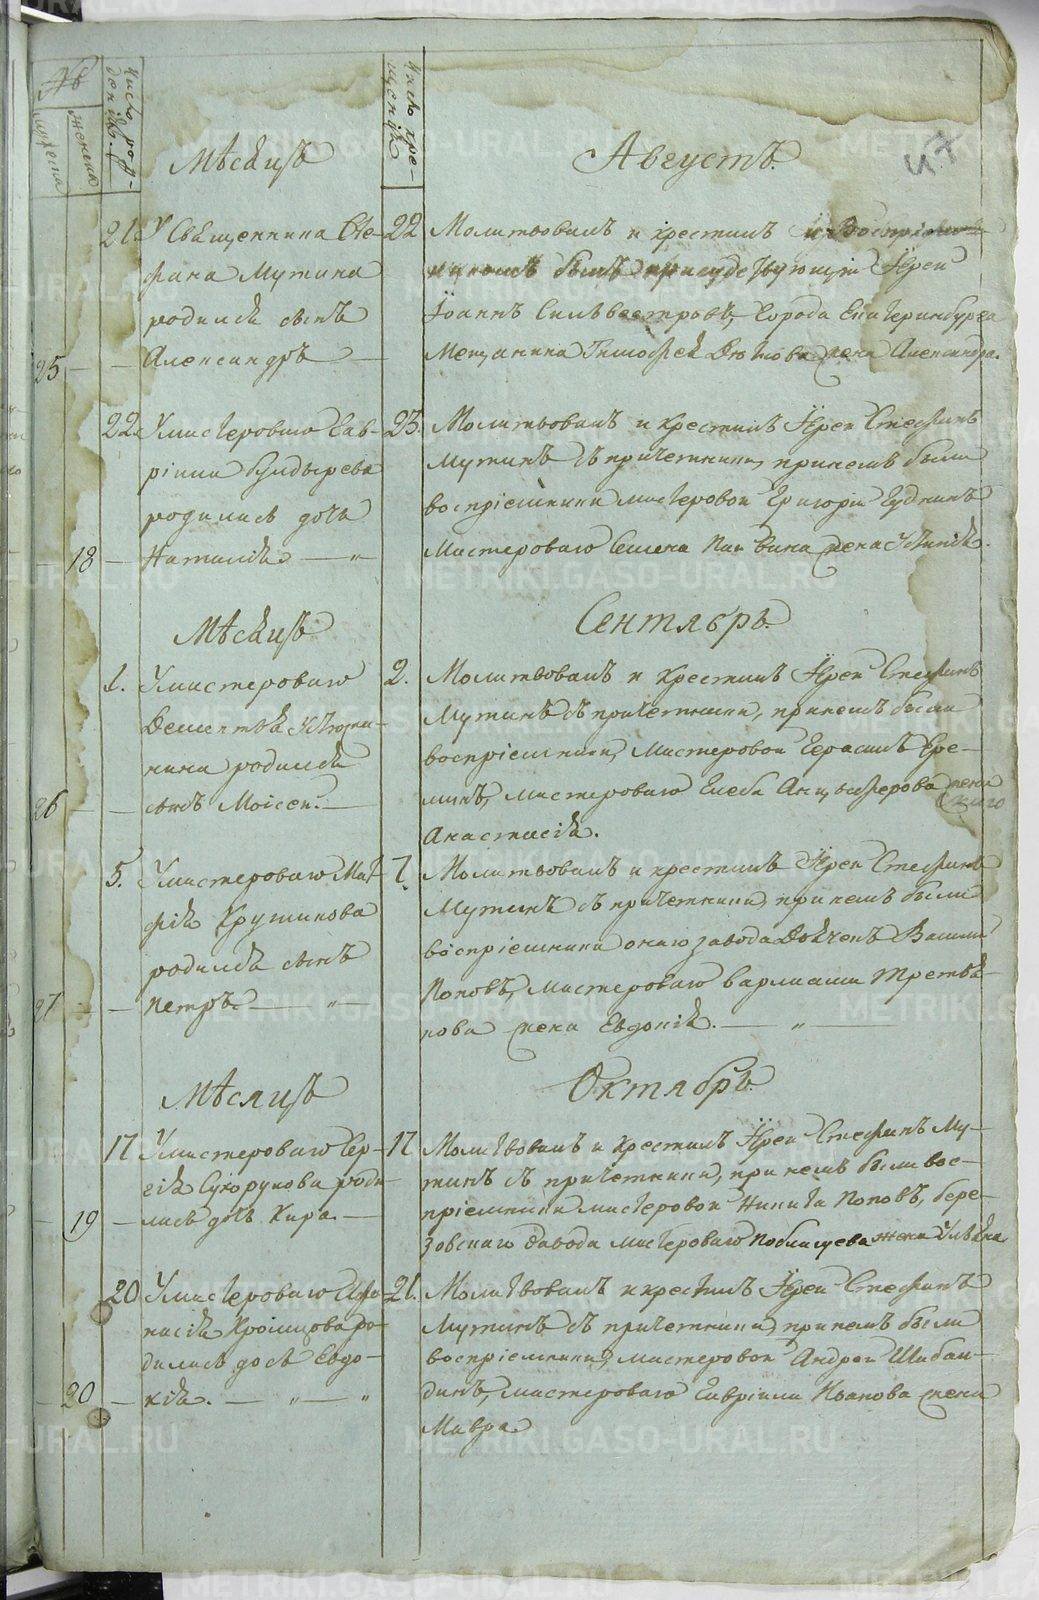 №
мужеска
женска
число рожденiя
число крещенiя
47
Мѣсяцъ
Августъ.
21. У Священника Сте-
фана Мутина
родился сынъ
25 Александръ
22 Молитвовалъ и крестилъ
былъ Iерей
Iоаннъ Сильвестровъ, города Екатеринбурга
Мещанина Тимофея жена Александра.
22. У мастероваго Гав-
рiила Булдырева
родилась дочь
18 Наталiя
23. Молитвовалъ и крестилъ Iерей Стефанъ
Мутинъ съ причетники, при немъ были
воспрiемники мастеровой Григорiй Гудкинъ
Мастероваго Семена жена
Мѣсяцъ
Сентябрь.
1. У мастероваго
Дементья Устюжа-
нина родился
26 сынъ Моисей.
2. Молитвовалъ и крестилъ Iерей Стефанъ
Мутинъ съ причетники, при немъ были
воспрiемники, Мастеровой Герасимъ Ере-
минъ, мастероваго Глеба Анцыферова жена
Анастасiя.
5. У мастероваго Мат-
фiя Крутикова
родился сынъ
27 Петръ.
7. Молитвовалъ и крестилъ Iерей Стефанъ
Мутинъ съ причетники, при немъ были
воспрiемники онаго завода Василiй
Поповъ, Мастероваго Варлаама Третья-
кова жена Евдокiя.
Мѣсяцъ
Октябрь.
17 У мастероваго Сер-
гiя Сухорукова роди-
19 лась дочь Кира.
17 Молитвовалъ и крестилъ Iерей Стефанъ Му-
тинъ съ причетники, при немъ были вос-
прiемники мастеровой Никита Поповъ, бере-
зовскаго завода мастероваго жена Улiяна
20 У мастероваго Афа-
насiя ро-
дилась дочь Евдо-
20 кiя.
21. Молитвовалъ и крестилъ Iерей Стефанъ
Мутинъ съ причетники, при немъ были
воспрiемники, мастеровой Андрей Шабал-
динъ, мастероваго Гаврiила Иванова жена
Мавра
METRIKI.GASO-URAL.RU